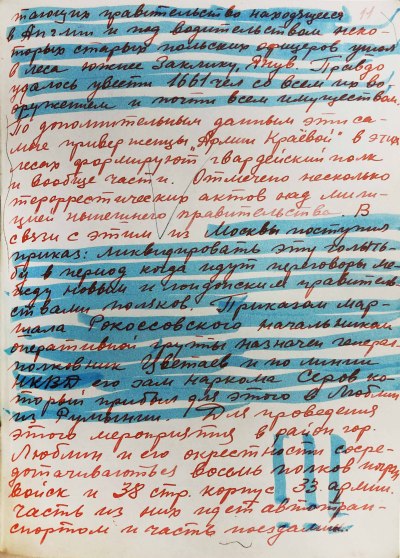 тающих правительство находящееся 11
в Англии и под водительством неко-
торых старых польских офицеров ушол
в леса южнее Заклику, Янув. Правдо
удалось увести 1661 чел со всем их во-
оружением и почти всем имуществом.
По дополнительным данным эти са-
мые приверженцы "Армии Краёвой" в этих
лесах формируют гвардейский полк
и вообще части. Отмечено несколько
террористических актов над мили-
цией нынешнего правительства. В
связи с этим из Москвы поступил
приказ: ликвидировать эту голыть-
бу в период когда идут переговоры ме-
жду новым и лондонским правитель-
ствами поляков. Приказом мар-
шала Рокоссовского начальником
оперативной группы назначен генерал
полковник Цветаев и по линии
НКВД его зам наркома Серов ко-
торый прибыл для этого в Люблин
из Румынии. Для проведения
этого мероприятия в район гор.
Люблин и его окрестности сосре-
дотачиваються восемь полков погран
войск и 38 стр. корпус 33 армии.
Часть из них идет автотран-
спортом и часть поездами.